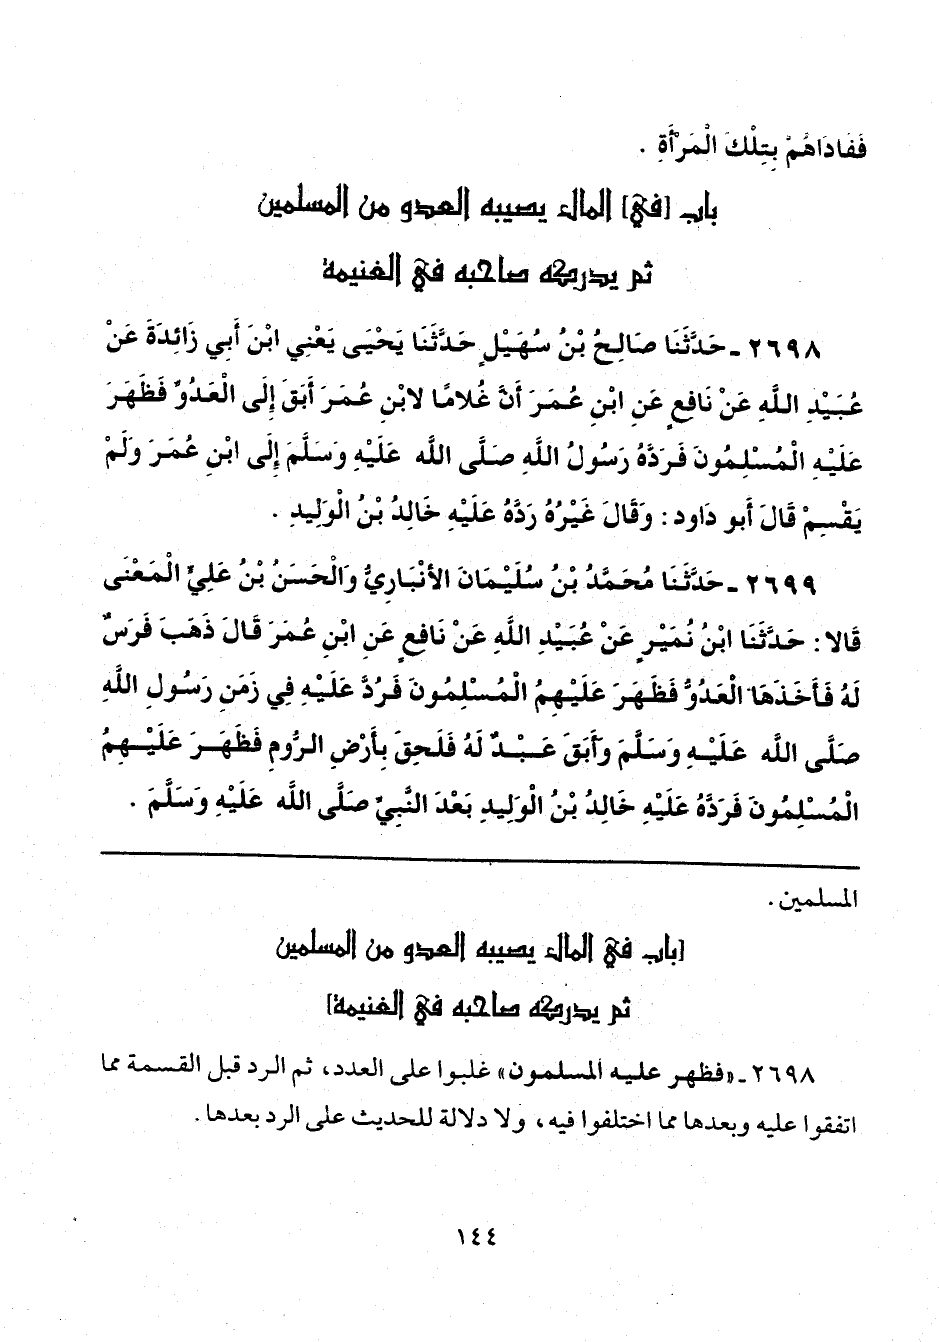 فَفَادَاهُمْ بِتِلْكَ الْمَرْأَةِ .
باب [في] المال يصيبه العدو من المسلمين
ثم يدركه صاحبه في الغنيمة
٢٦٩٨ ـ حَدَّثَنَا صَالِحُ بْنُ سُهَيْلٍ حَدَّثَنَا يَحْيَى يَعْنِي ابْنَ أَبِي زَائِدَةَ عَنْ
عُبَيْدِ اللَّهِ عَنْ نَافِعٍ عَنِ ابْنِ عُمَرَ أَنَّ غُلَامًا لابْنِ عُمَرَ أَبَقَ إِلَى الْعَدُوِّ فَظَهَرَ
عَلَيْهِ الْمُسْلِمُونَ فَرَدَّهُ رَسُولُ اللَّهِ صَلَّى اللَّه عَلَيْهِ وَسَلَّمَ إِلَى ابْنِ عُمَرَ وَلَمْ
يَقْسِمْ قَالَ أَبو دَاود: وَقَالَ غَيْرُهُ رَدَّهُ عَلَيْهِ خَالِدُ بْنُ الْوَلِيدِ .
٢٦٩٩ ـ حَدَّثَنَا مُحَمَّدُ بْنُ سُلَيْمَانَ الأَنْبَارِيُّ وَالْحَسَنُ بْنُ عَلِيٍّ الْمَعْنَى
قَالا: حَدَّثَنَا ابْنُ نُمَيْرٍ عَنْ عُبَيْدِ اللَّهِ عَنْ نَافِعٍ عَنِ ابْنِ عُمَرَ قَالَ ذَهَبَ فَرَسٌ
لَهُ فَأَخَذَهَا الْعَدُوُّ فَظَهَرَ عَلَيْهِمُ الْمُسْلِمُونَ فَرُدَّ عَلَيْهِ فِي زَمَنِ رَسُولِ اللَّهِ
صَلَّى اللَّه عَلَيْهِ وَسَلَّمَ وَأَبَقَ عَبْدٌ لَهُ فَلَحِقَ بِأَرْضِ الرُّومِ فَظَهَرَ عَلَيْهِمُ
الْمُسْلِمُونَ فَرَدَّهُ عَلَيْهِ خَالِدُ بْنُ الْوَلِيدِ بَعْدَ النَّبِيِّ صَلَّى اللَّه عَلَيْهِ وَسَلَّمَ .
المسلمين .
[باب في المال يصيبه العدو من المسلمين
ثم يدركه صاحبه في الغنيمة]
٢٦٩٨ ـ «فظهر عليه المسلمون» غلبوا على العدد، ثم الرد قبل القسمة مما
اتفقوا عليه وبعدها مما اختلفوا فيه، ولا دلالة للحديث على الرد بعدها .
١٤٤